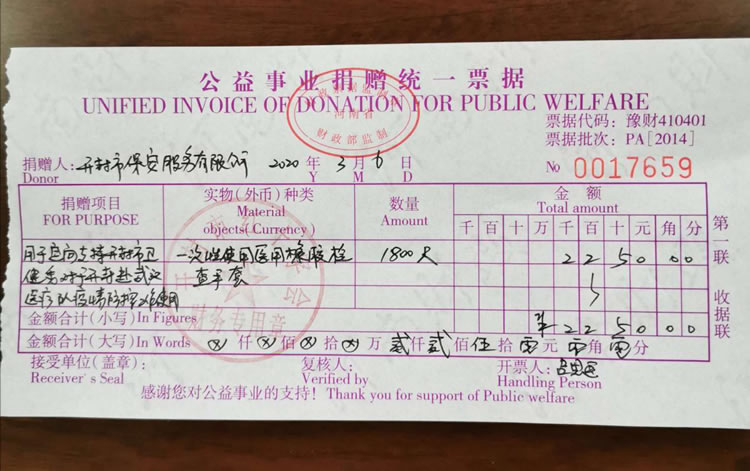 公益事业捐赠统一票据
UNIFIED INVOICE OF DONATION FOR PUBLIC WELFARE
河南省
财政部监制
票据代码：豫财410401
票据批次：PA[2014]
捐赠人：开封市保安服务有限公司 2020 年 3 月 6 日
Donor Y M D
№ 0017659
捐赠项目 实物（外币）种类 数量 金 额
FOR PURPOSE Material objects(Currency) Amount Total amount
千 百 十 万 千 百 十 元 角 分
用于定向支持开封市卫 一次性使用医用橡胶检 1800 2 2 5 0 0 0
健委对开封赴武汉 查手套
医疗队疫情防控使用
财务专用章
金额合计（小写）In Figures ¥ 2 2 5 0 0 0
金额合计（大写）In Words ⊗ 仟 ⊗ 佰 ⊗ 拾 ⊗ 万 贰 仟 贰 佰 伍 拾 零 元 零 角 零 分
接受单位（盖章）： 复核人： 开票人：
Receiver's Seal Verified by Handling Person
感谢您对公益事业的支持！Thank you for support of Public welfare
第一联 收据联